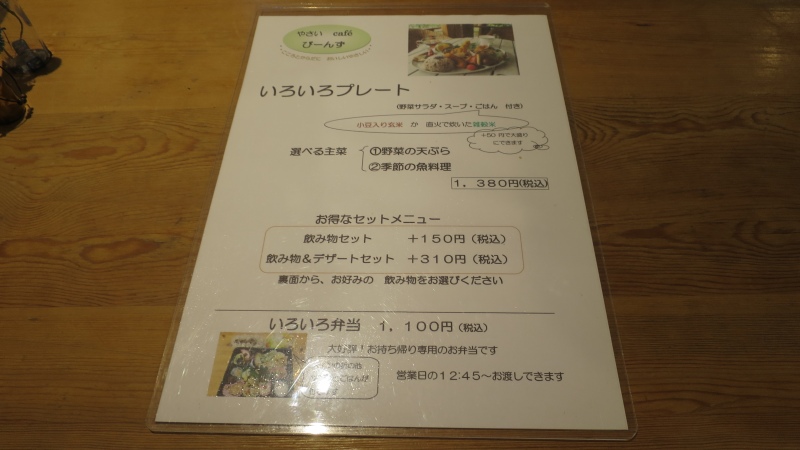 やさい café
びーんず
いろいろプレート
(野菜サラダ・スープ・ごはん 付き)
小豆入り玄米 か 直火で炊いた雑穀米
+50 円で大盛り
にできます
選べる主菜 ①野菜の天ぷら
②季節の魚料理
1，380円(税込)
お得なセットメニュー
飲み物セット +150円（税込）
飲み物&デザートセット +310円（税込）
裏面から、お好みの 飲み物をお選びください
いろいろ弁当 1，100円（税込）
大好評！お持ち帰り専用のお弁当です
営業日の12:45～お渡しできます